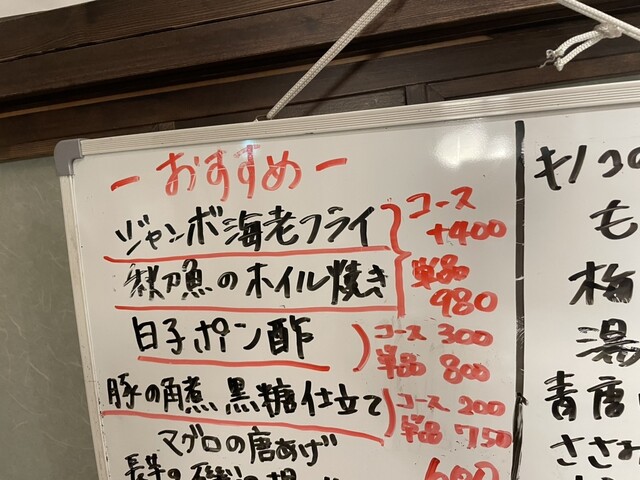 ーおすすめー
ジャンボ海老フライ
コース
+400
秋刀魚のホイル焼き
単品
980
白子ポン酢
コース 300
単品 800
豚の角煮 黒糖仕立て
コース 200
単品 750
マグロの唐あげ
長芋の磯
キノコ
も
梅
湯
青唐
ささみ